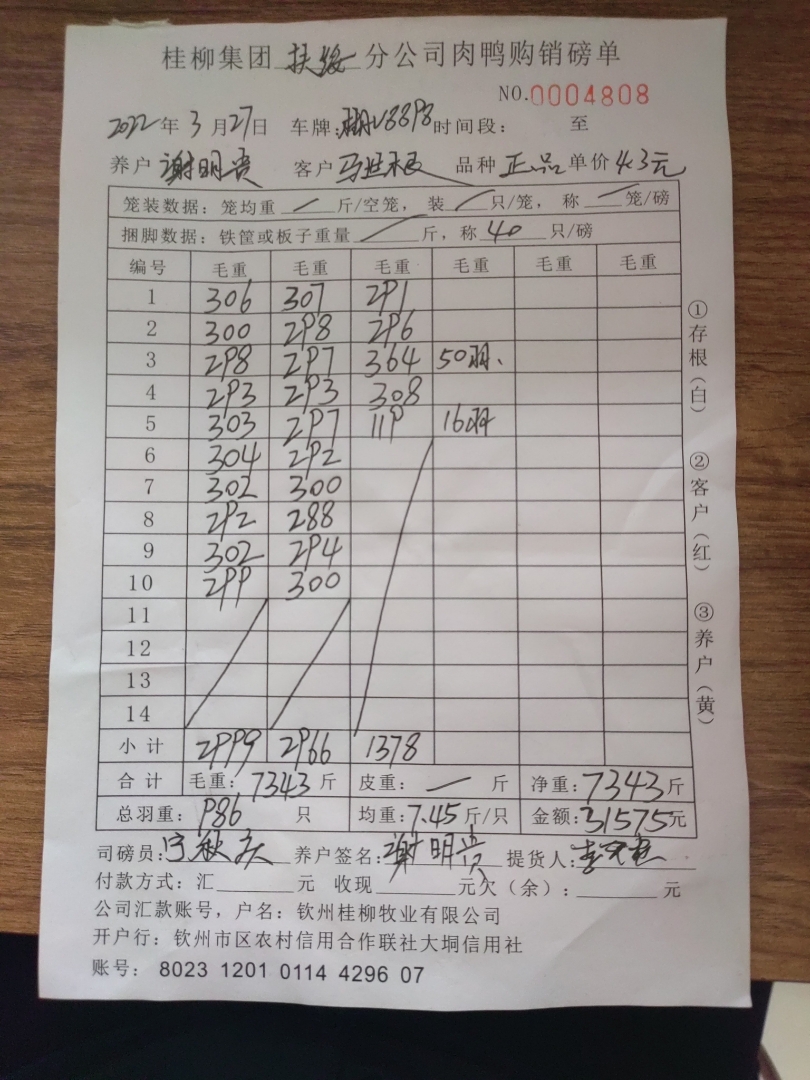 桂柳集团 扶绥 分公司肉鸭购销磅单
NO.0004808
2022年 3 月 27日 车牌: 时间段: 至
养户 谢明贵 客户 品种 正品 单价 4.3元
笼装数据: 笼均重 / 斤/空笼, 装 / 只/笼, 称 / 笼/磅
捆脚数据: 铁筐或板子重量 / 斤, 称 40 只/磅
编号 毛重 毛重 毛重 毛重 毛重 毛重
1 306 307 291
2 300 298 296
3 298 297 364 50羽、
4 293 293 308
5 303 297 119 16羽
6 304 292
7 302 300
8 292 288
9 302 294
10 299 300
11
12
13
14
小计 2999 2966 1378
合计 毛重: 7343 斤 皮重: 一 斤 净重: 7343 斤
总羽重: 986 只 均重: 7.45 斤/只 金额: 31575元
司磅员: 养户签名: 谢明贵 提货人:
付款方式: 汇 元 收现 元欠(余): 元
公司汇款账号, 户名: 钦州桂柳牧业有限公司
开户行: 钦州市区农村信用合作联社大垌信用社
账号: 8023 1201 0114 4296 07
①存根(白)
②客户(红)
③养户(黄)